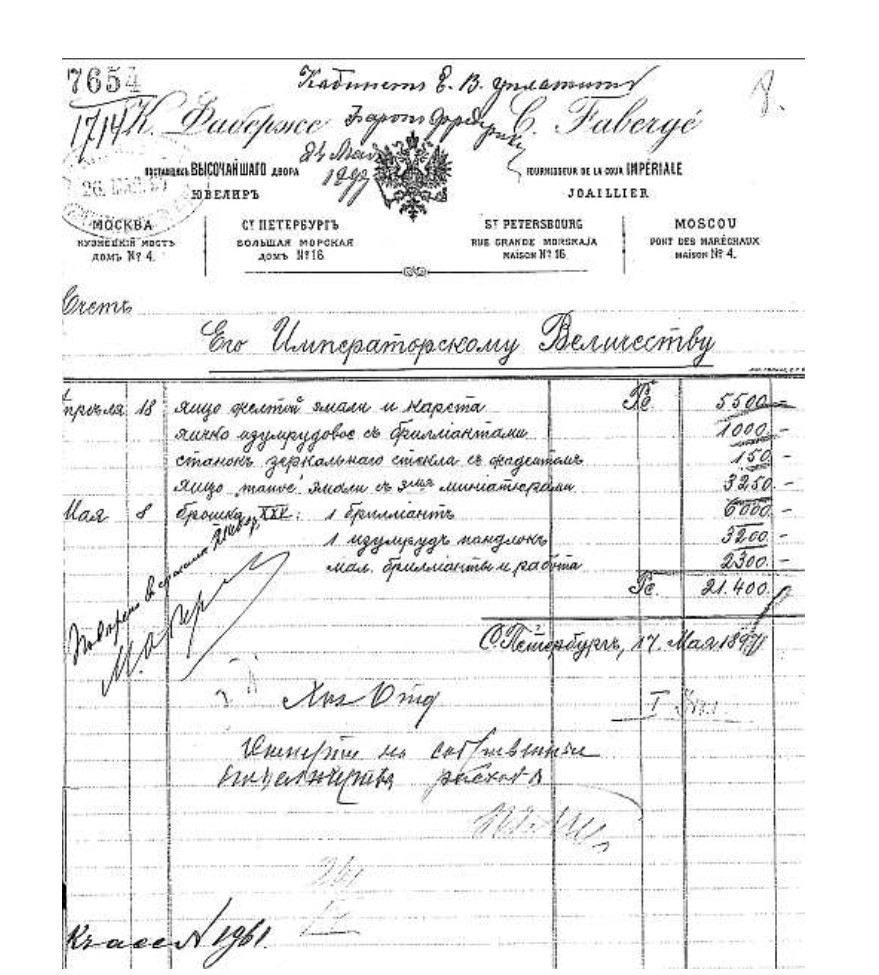 7654
1714
Кабинетъ Е. В. уплатить
К. Фаберже
C. Fabergé
Баронъ Фредериксъ
24 Мая
1897
ПОСТАВЩИКЪ ВЫСОЧАЙШАГО ДВОРА
FOURNISSEUR DE LA COUR IMPÉRIALE
26. МАЯ. 97
ЮВЕЛИРЪ
JOAILLIER
МОСКВА
СТ ПЕТЕРБУРГЪ
ST PETERSBOURG
MOSCOU
КУЗНЕЦКIЙ МОСТЪ
БОЛЬШАЯ МОРСКАЯ
RUE GRANDE MORSKAJA
PONT DES MARÉCHAUX
ДОМЪ № 4.
ДОМЪ № 16
MAISON № 16
MAISON № 4.
Счетъ
Его Императорскому Величеству
Апрѣля 18 яйцо желтой эмали и карета Рс 5500 -
яичко изумрудовое съ бриллiантами 1000 -
станокъ зеркальнаго стекла съ жадеитомъ 150 -
яйцо „mauve" эмали съ 3мя миніатюрами 3250 -
Мая 8 брошка XXV: 1 бриллiантъ 6000 -
1 изумрудъ панделокъ 3200 -
мал. бриллiанты и работа 2300 -
Рс. 21.400
С. Петербургъ, 17. Мая 1897
Хоз Отд
расхода
1961.